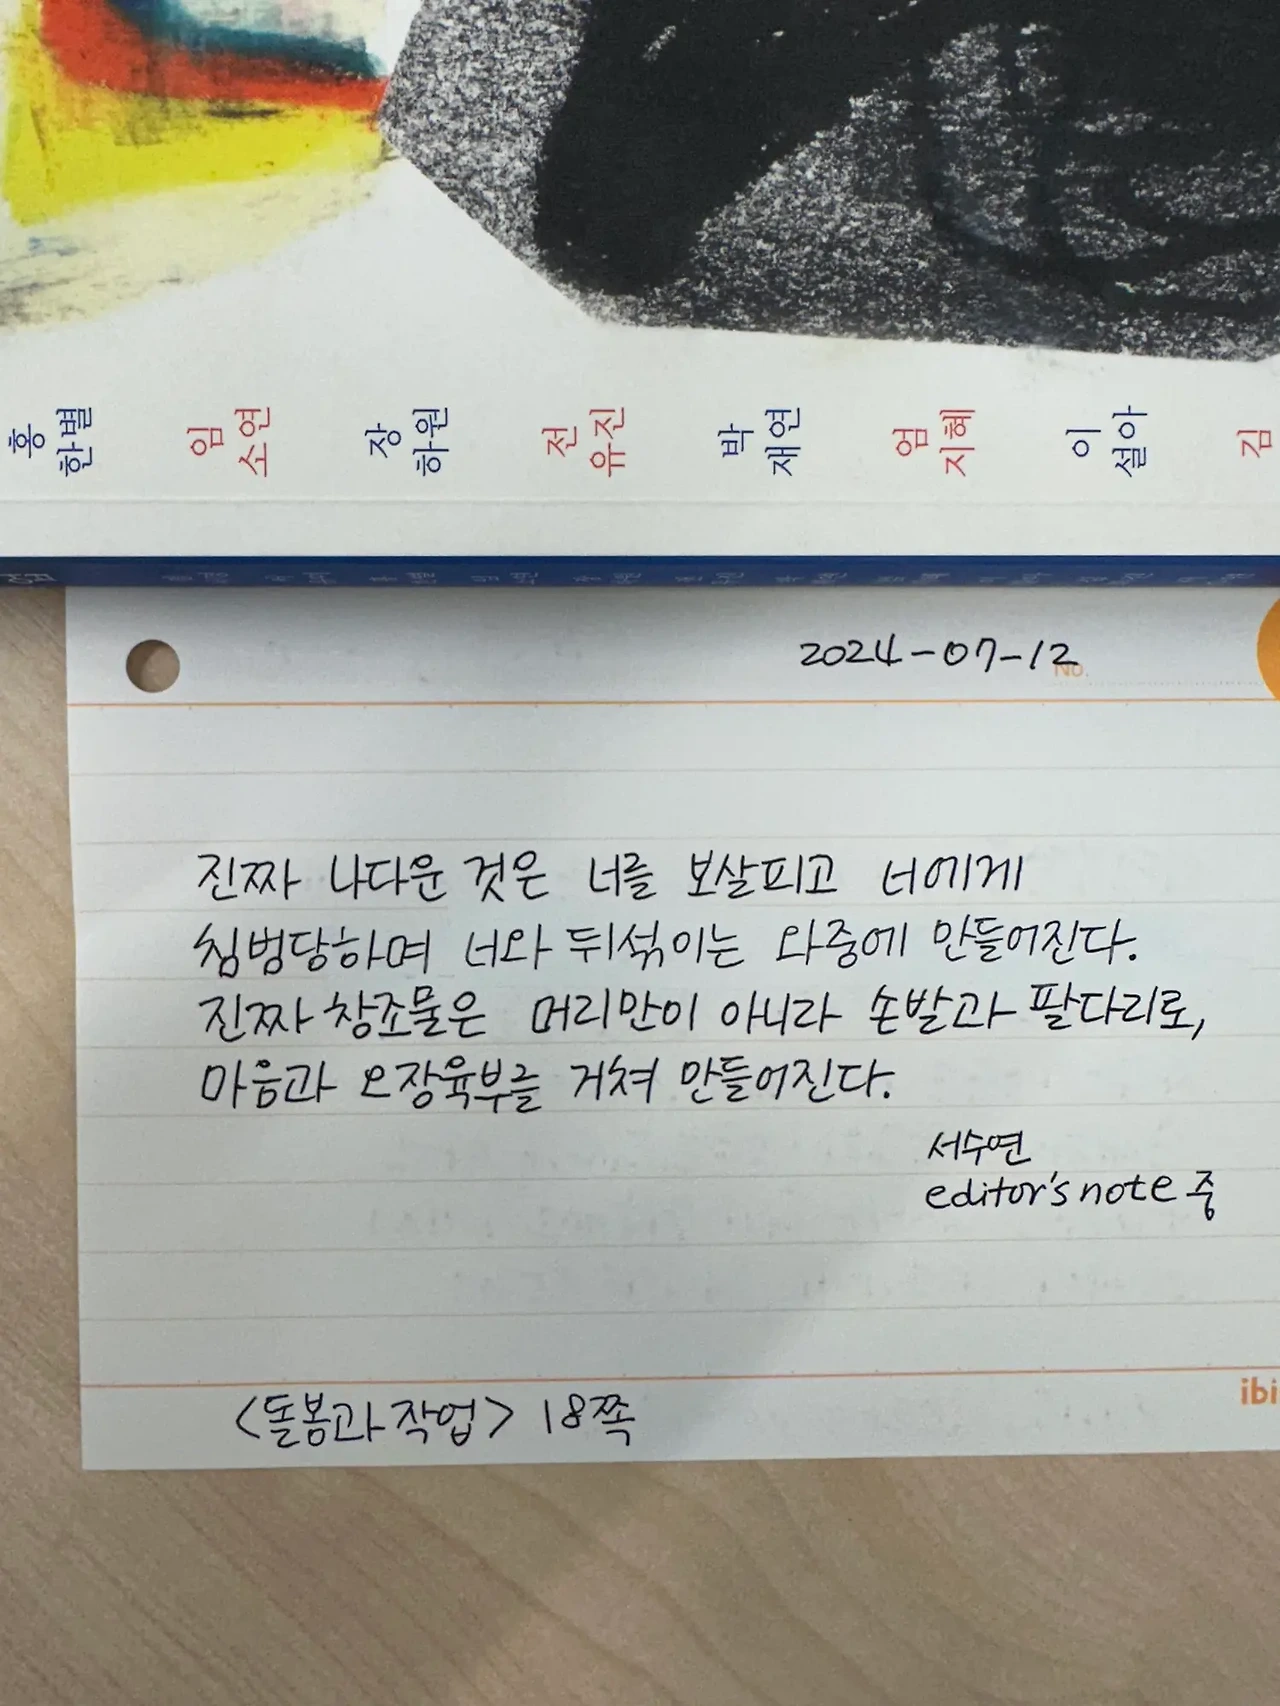 홍한별
임소연
장하원
전유진
박재연
엄지혜
이설아
김
2024-07-12
No.
진짜 나다운 것은 너를 보살피고 너에게
침범당하며 너와 뒤섞이는 와중에 만들어진다.
진짜 창조물은 머리만이 아니라 손발과 팔다리로,
마음과 오장육부를 거쳐 만들어진다.
서수연
editor's note 중
<돌봄과 작업> 18쪽
ibi